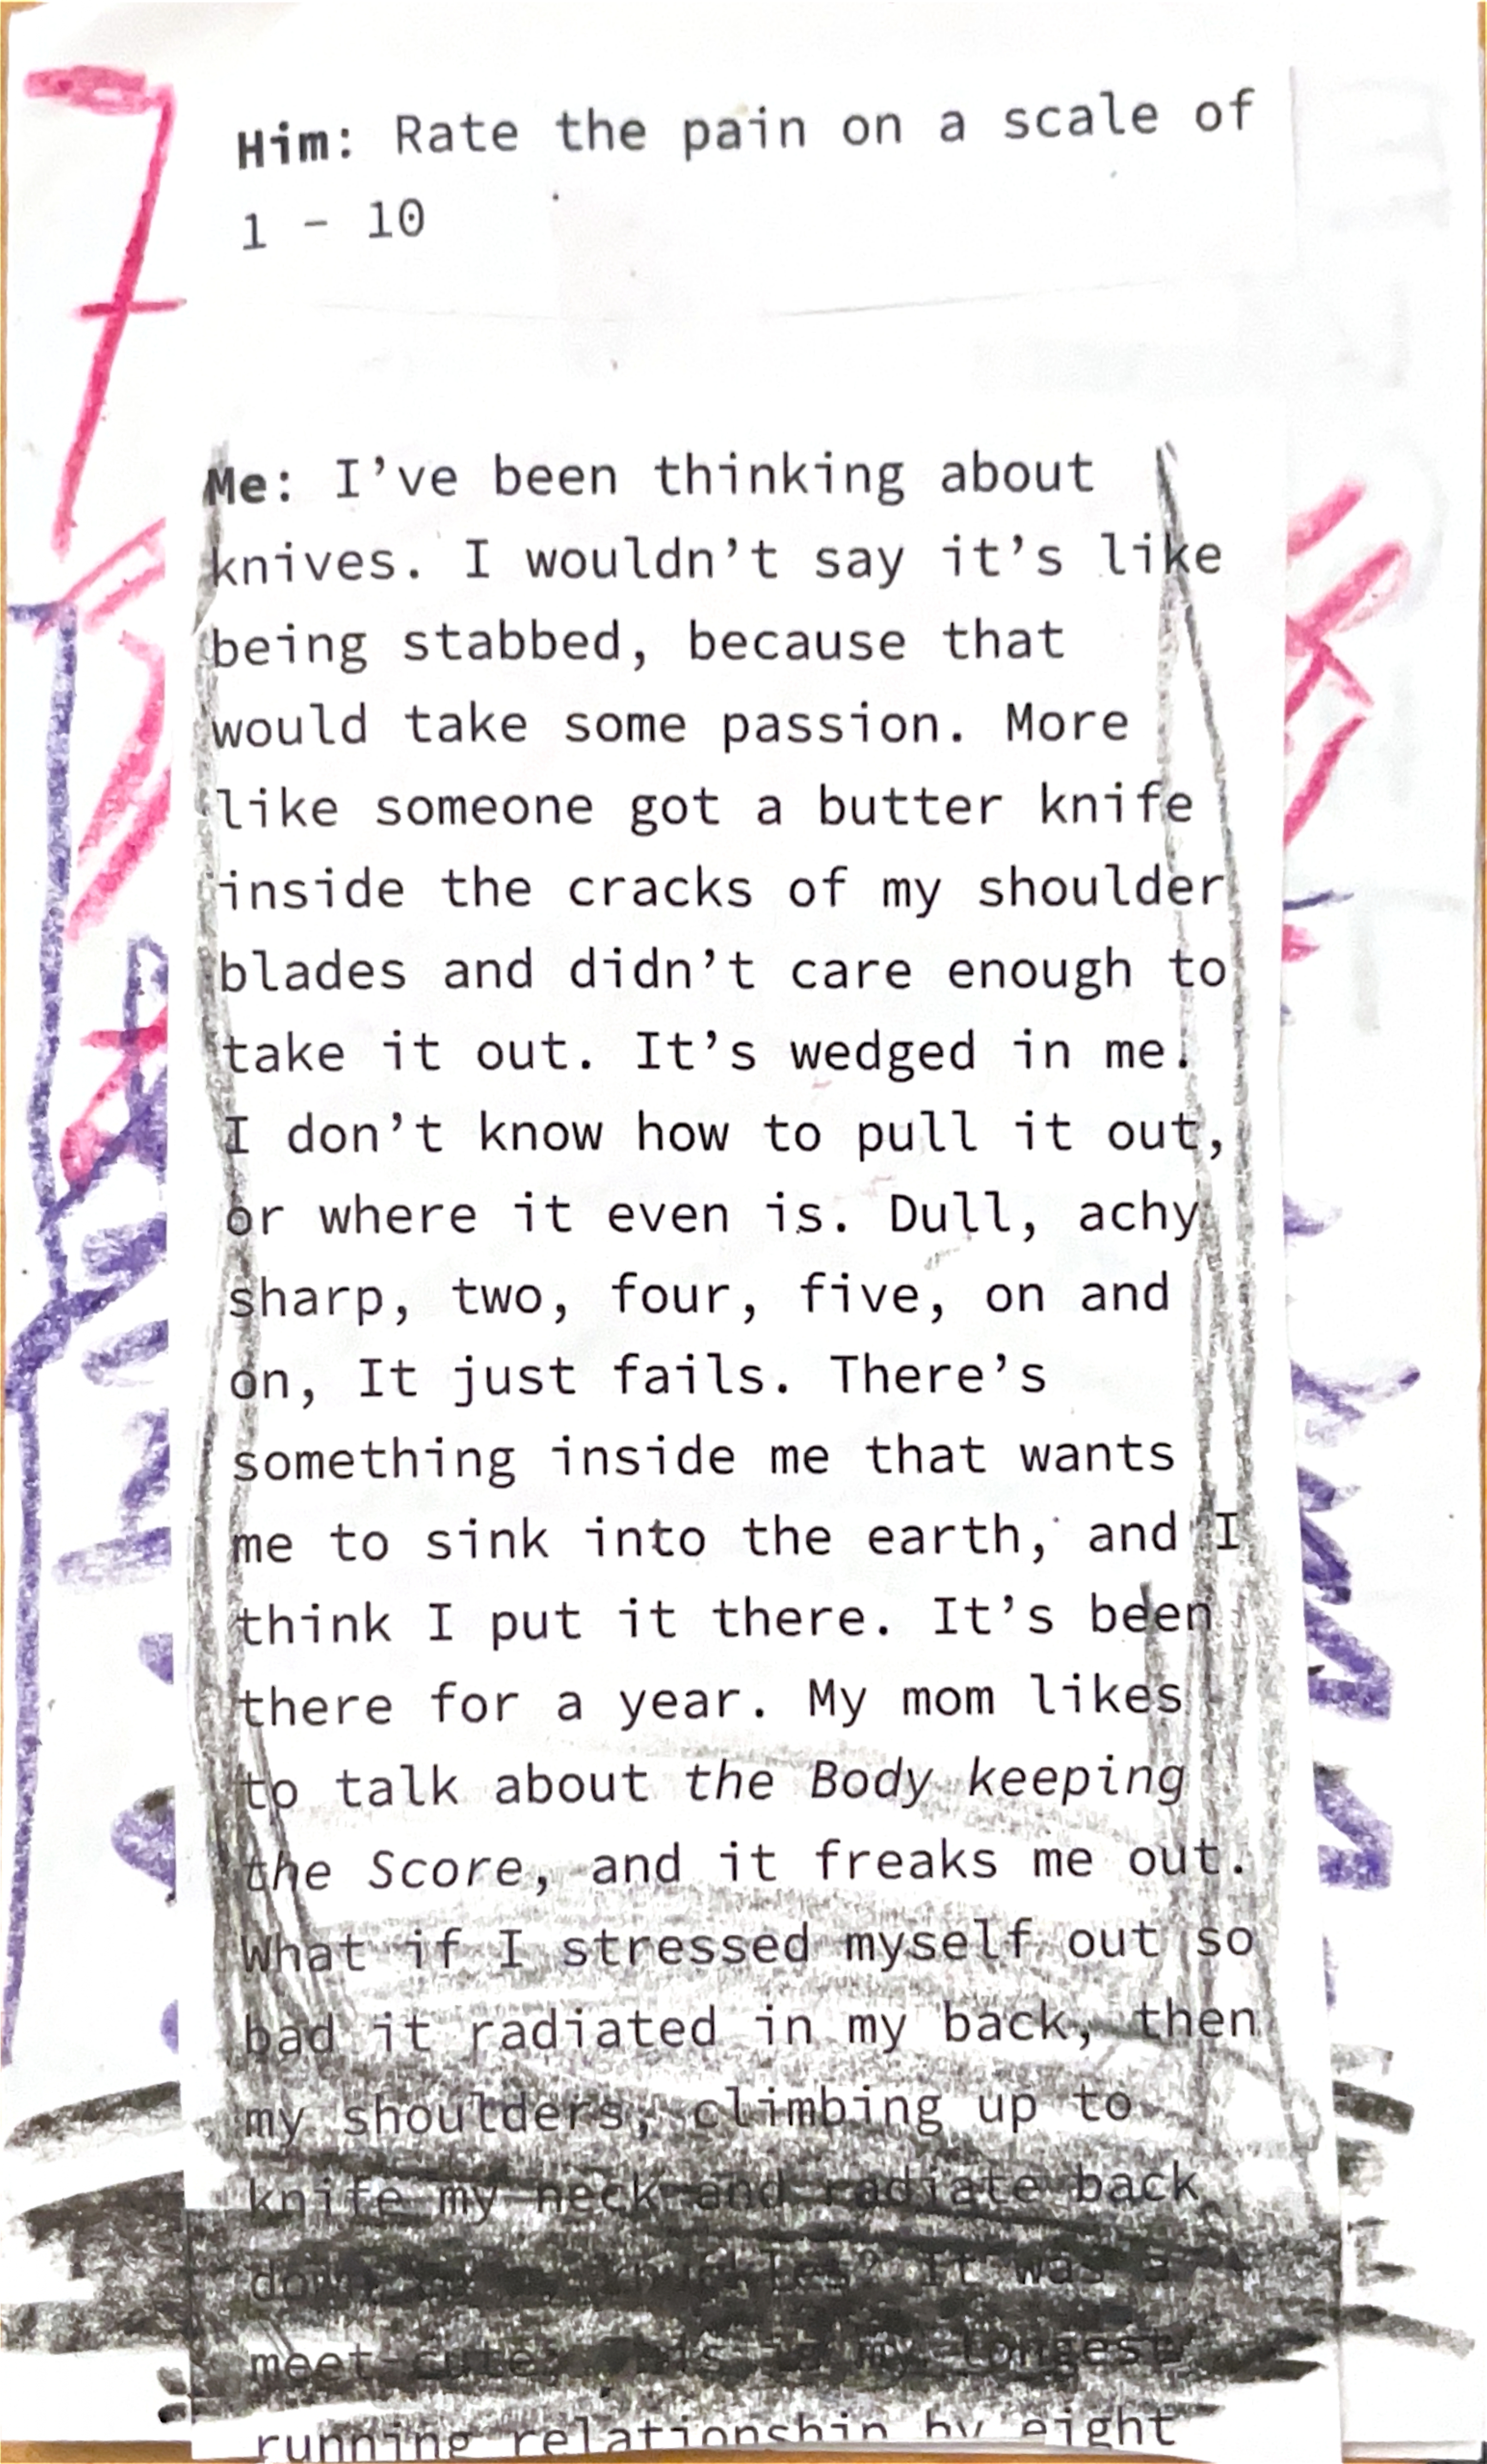 7
Him: Rate the pain on a scale of
1 - 10
Me: I've been thinking about
knives. I wouldn't say it's like
being stabbed, because that
would take some passion. More
like someone got a butter knife
inside the cracks of my shoulder
blades and didn't care enough to
take it out. It's wedged in me.
I don't know how to pull it out,
or where it even is. Dull, achy
sharp, two, four, five, on and
on, It just fails. There's
something inside me that wants
me to sink into the earth, and I
think I put it there. It's been
there for a year. My mom likes
to talk about the Body keeping
the Score, and it freaks me out.
What if I stressed myself out so
bad it radiated in my back, then
my shoulders, climbing up to
knife my neck and radiate back
It was a
meet-cute: my longest
running relationship by eight